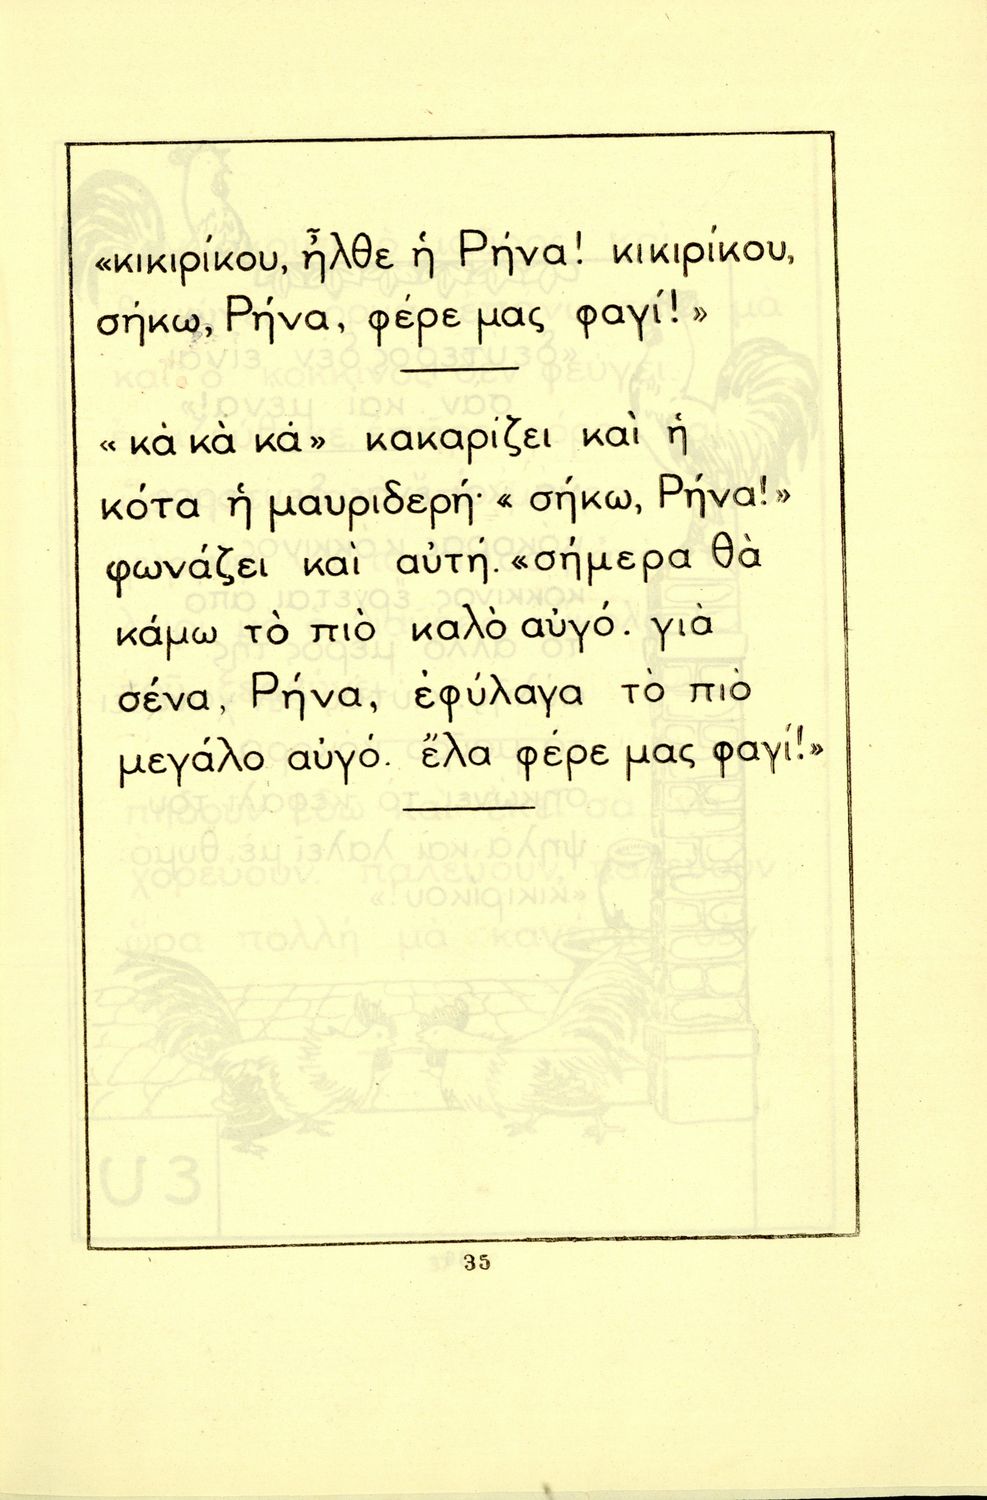 «κικιρίκου, ἦλθε ἡ Ρήνα! κικιρίκου,
σήκω, Ρήνα, φέρε μας φαγί!»
«κὰ κὰ κά» κακαρίζει καὶ ἡ
κότα ἡ μαυριδερή· «σήκω, Ρήνα!»
φωνάζει καὶ αὐτή. «σήμερα θὰ
κάμω τὸ πιὸ καλὸ αὐγό. γιὰ
σένα, Ρήνα, ἐφύλαγα τὸ πιὸ
μεγάλο αὐγό. ἔλα φέρε μας φαγί!»
35